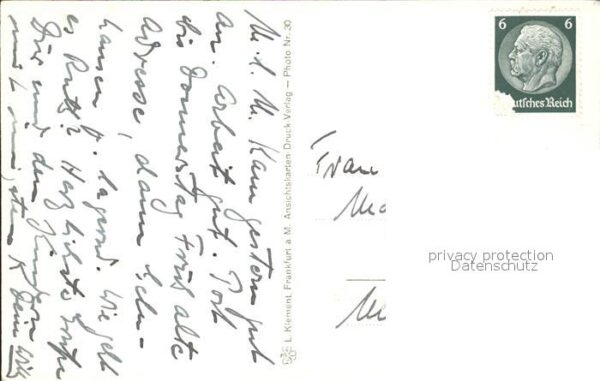 M. l. M. Kam gestern gut
an. Arbeit gut. Post
bis Donnerstag früh alte
Adresse, dann
hausen lagernd. Wie geht
es Ruth? Herzlichste
Dir und den Kindern
Dein Willy
L. Klement, Frankfurt a. M. Ansichtskarten-Druck-Verlag — Photo Nr. 30
6 6
Deutsches Reich
Frau
privacy protection
Datenschutz